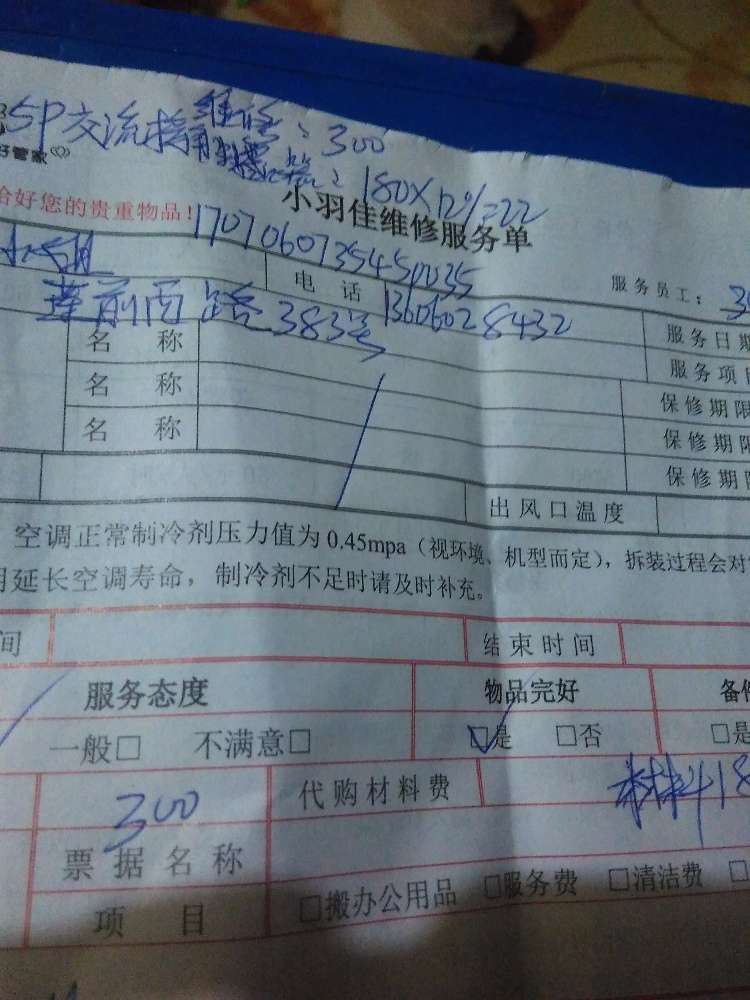 5P交流接
维修：300
180×12%=22
好管家
恰好您的贵重物品！
小羽佳维修服务单
17070607354540035
电话 13606028432
服务员工：3
莲前西路383号
名称
服务日期
名称
服务项目
名称
保修期限
保修期限
保修期限
出风口温度
空调正常制冷剂压力值为0.45mpa（视环境、机型而定），拆装过程会对
明延长空调寿命，制冷剂不足时请及时补充。
间 结束时间
服务态度 物品完好 备件
一般□ 不满意□ ☑是 □否 □是
300 代购材料费 材料18
票据名称
项目 □搬办公用品 □服务费 □清洁费 □